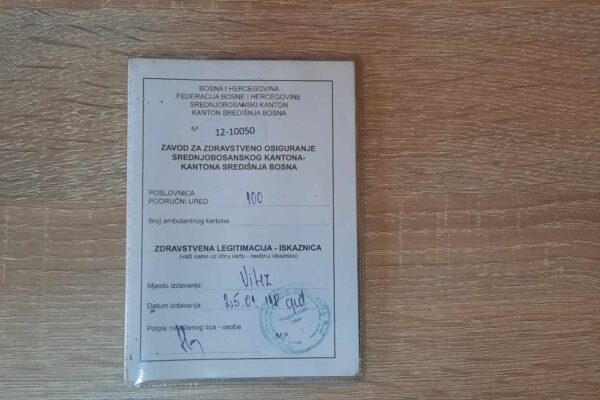 BOSNA I HERCEGOVINA
FEDERACIJA BOSNE I HERCEGOVINE
SREDNJOBOSANSKI KANTON
KANTON SREDIŠNJA BOSNA
Nº 12-10050
ZAVOD ZA ZDRAVSTVENO OSIGURANJE
SREDNJOBOSANSKOG KANTONA-
KANTONA SREDIŠNJA BOSNA
POSLOVNICA
PODRUČNI URED 100
Broj ambulantnog kartona
ZDRAVSTVENA LEGITIMACIJA - ISKAZNICA
(važi samo uz ličnu kartu - osobnu iskaznicu)
Mjesto izdavanja: Vitez
Datum izdavanja: 25.01. 18 god.
Potpis ovlaštenog lica - osobe
M.P.